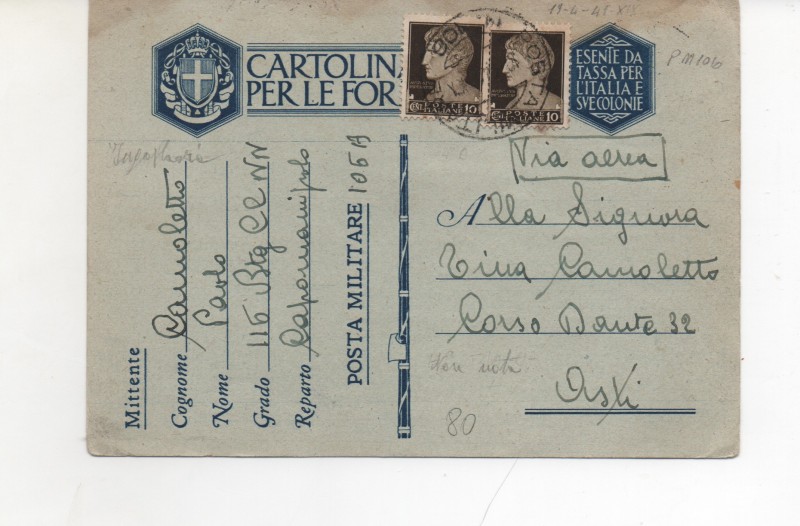 19-4-41-XIX
PM 106
CARTOLINA
PER LE FOR
POSTE ITALIANE
10
POSTE ITALIANE
10
POSTA MILITARE
ESENTE DA
TASSA PER
L'ITALIA E
SVE COLONIE
Via aerea
Alla Signora
Tina Camoletto
Corso Dante 32
Asti
80
Mittente
Cognome Camoletto
Nome Paolo
Grado 116 Btg CC NN
Reparto Capomanipolo
POSTA MILITARE 106 A